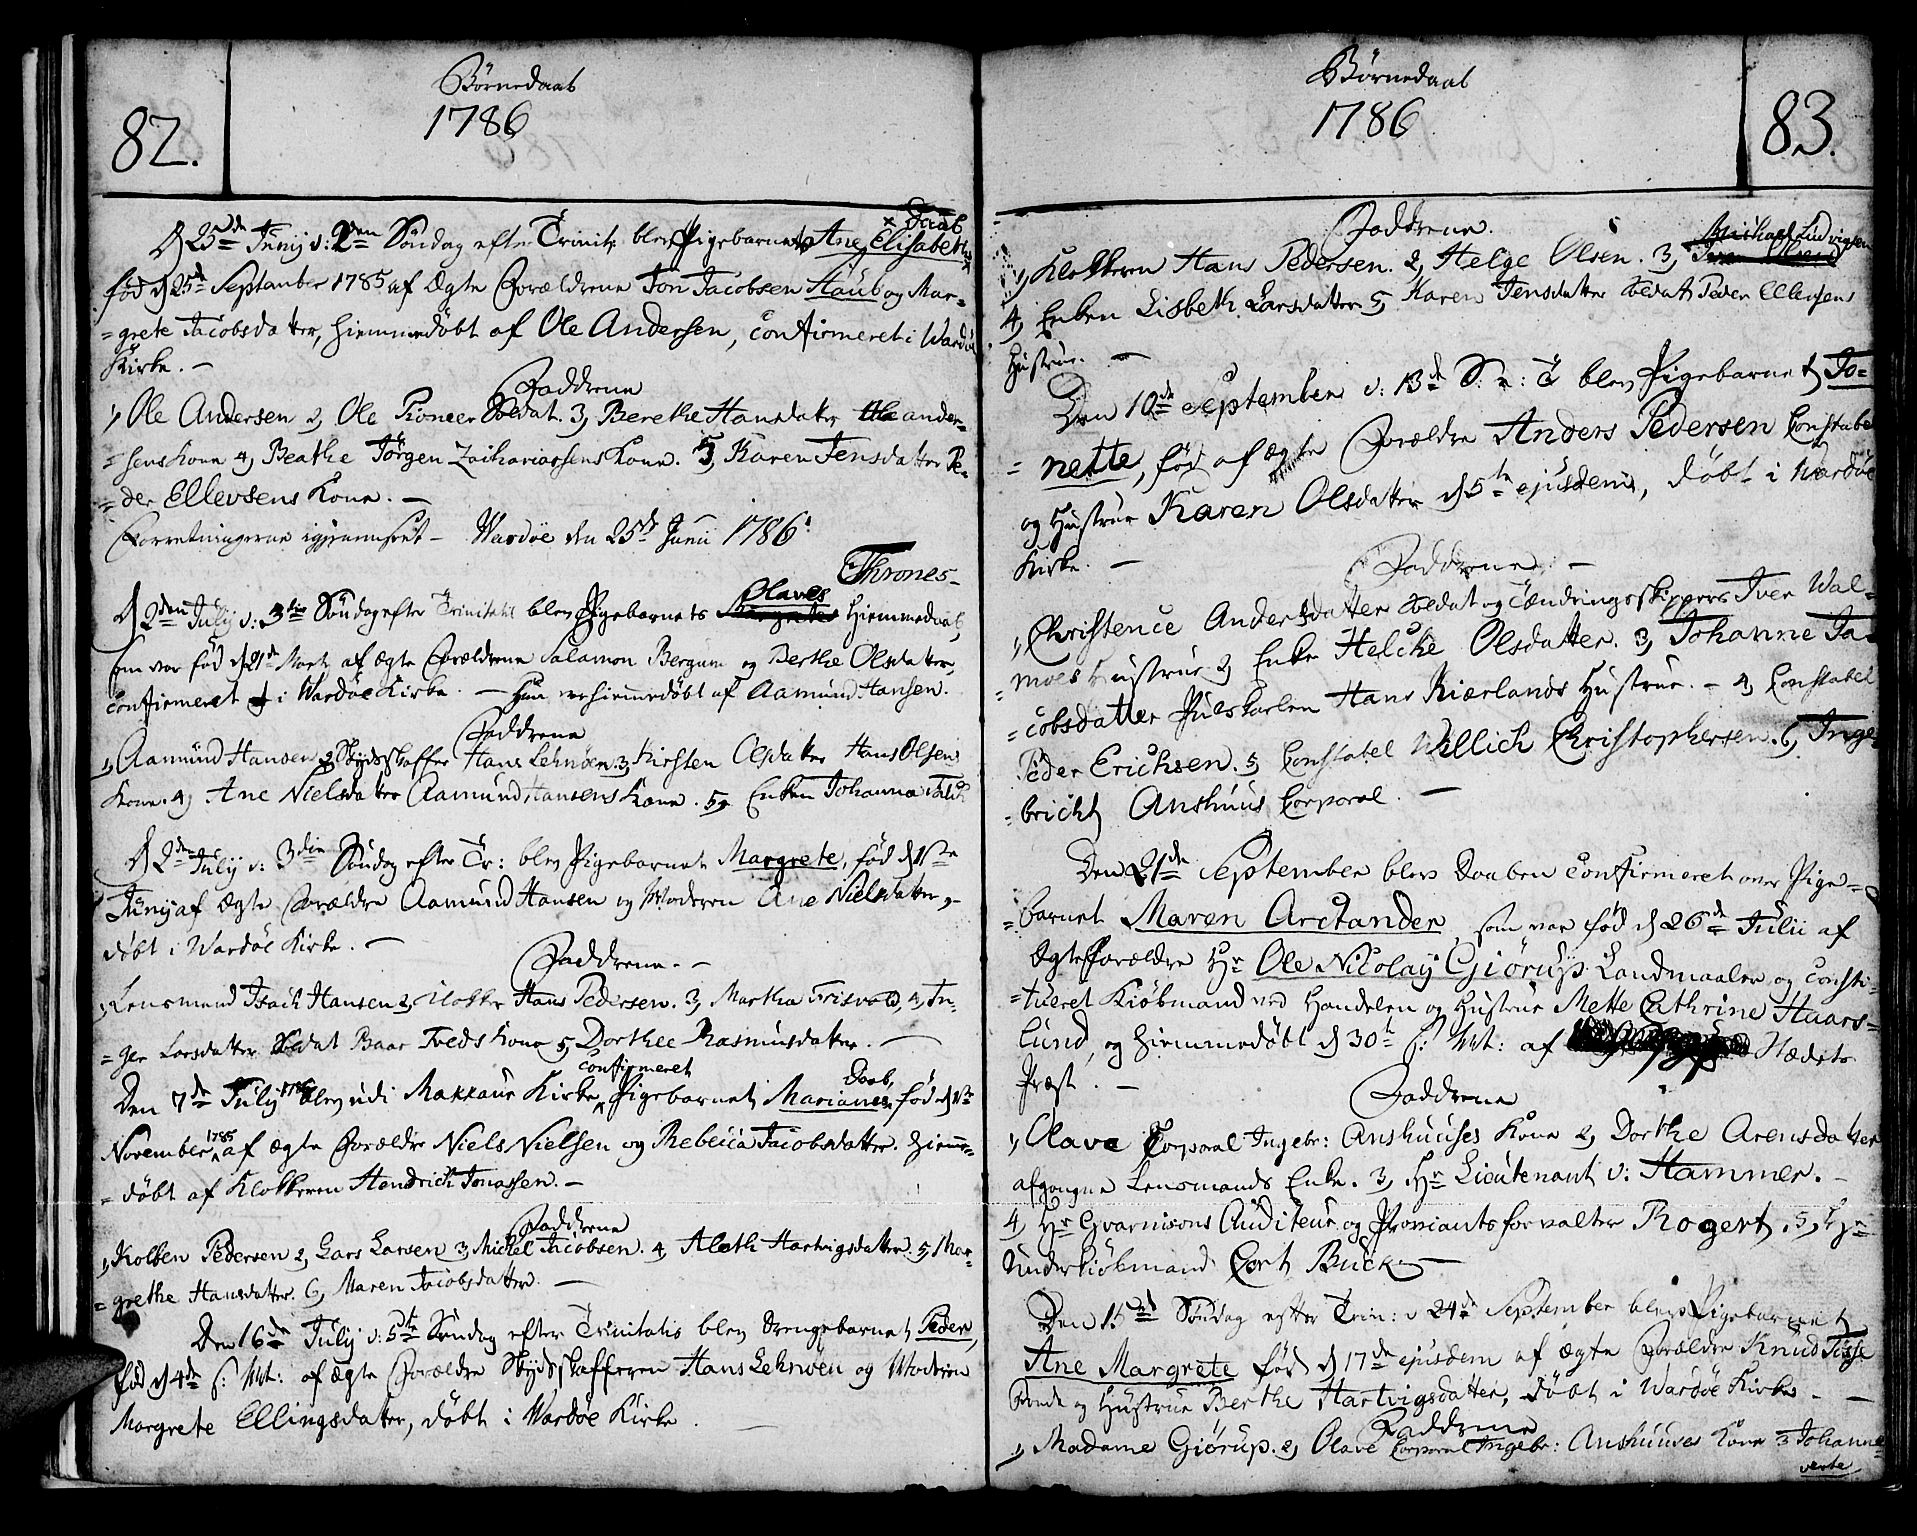 Børnedaab
1786
82.
D 25de Junij v: 2den Søndag efter Trinit: blev Pigebarnets Ane Elisabeth Daab
fød d 25de September 1785 af Ægte Forældrene Jon Jacobsen Haub og Mar-
=grete Jacobsdatter, hiemmedøbt af Ole Andersen, confirmeret i Wardøe
Kirke. –
Faddrene
1, Ole Andersen 2, Ole Pioneer Soldat. 3, Berethe Hansdatter Ole ander-
=sens Kone 4, Beathe Jørgen Zachariassens Kone. 5, Karen Jensdatter Pe-
=der Ellevsens Kone. –
Forretningerne igiennemseet – Wardøe den 25de Junii 1786.
Thrones-
D 2den Julij v: 3die Søndag efter Trinitatis blev Pigebarnets Olaves Hiemmedaab,
som var fød d 21de Martj af ægte Forældrene Salamon Bergum og Berthe Olsdatter,
confirmeret i Wardøe Kirke. – Hun er hiemmedøbt af Aamund Hansen.
Faddrene
1, Aamund Hansen 2, Skydsskaffer Hans Lehnøen. 3, Kirsten Olsdatter Hans Olsens
Kone. 4, Ane Nielsdatter Aamund Hansens Kone. 5, Enken Johanna Falck
D 2den Julij v: 3die Søndag efter Tr: blev Pigebarnet Margrete, fød d 1ste
Junij af Ægte Forældre Aamund Hansen og Moderen Ane Nielsdatter,
døbt i Wardøe Kirke. –
Faddrene. –
1, Lensmand Isach Hansen 2, Klokker Hans Pedersen. 3, Martha Frisvold, 4, In-
=ger Larsdatter Soldat Baar Freds Kone 5, Dorthee Rasmusdatter. –
Den 7de Julij 1786 blev udi Makkaur Kirke confirmeret Pigebarnet Marianes Daab, fød d 1ste
November 1785 af ægte Forældre Niels Nielsen og Rebecca Jacobsdatter. hiemme-
=døbt af Klokkeren Hendrich Jonassen. –
Faddrene
1, Kolben Pedersen 2, Lars Larsen 3, Michel Jacobsen. 4, Aleth Hartvigsdatter. 5, Mar-
=grethe Hansdatter. 6, Maren Jacobsdatter. –
Den 16de Julij v: 5te Søndag efter Trinitatis blev Drengebarnet Peder,
fød d 4de s: Mt: af ægte Forældre Skydsskafferen Hans Lehnøen og Moderen
Margrete Ellingsdatter, døbt i Wardøe Kirke. –
Børnedaab
1786
83.
Faddrene.
1, Klokkeren Hans Pedersen. 2, Helge Olsen. 3, Michael Ludvigsen
4, Enken Lisbeth Larsdatter 5, Karen Jensdatter Soldat Peder Ellevsens
Hustrue. –
Den 10de September v: 13de S: e: T blev Pigebarnet Jo-
=nette, fød af ægte Forældre Anders Pedersen Constabel
og Hustrue Karen Olsdatter d 5te ejusdem, døbt i Wardøe
Kirke. –
Faddrene. –
1, Christence Andersdatter Soldat og Tændringsskippers Iver Wal-
=moes Hustrue 2, Enke Helche Olsdatter. 3, Johanne Ja-
=cobsdatter Pulskarlen Hans Kiærlands Hustrue. – 4, Constabel
Peder Erichsen. 5, Constabel Willich Christophersen. 6, Inge-
=bricht Anshuus Corporal. –
Den 21de September blev Daaben confirmeret over Pige-
=barnet Maren Arctander, som var fød d 26de Julii af
Ægte Forældre Hr Ole Nicolay Giørup Landmaaler og Consti-
=tueret Kiøbmand ved Handelen og Hustrue Mette Cathrine Haars-
=lund, og hiemmedøbt d 30te s: Mt: af Stædets
Præst. –
Faddrene
1, Olave Corporal Ingebr: Anshuuses Kone 2, Dorthe Arensdatter
afgangne Lensmands Enke. 3, Hr Lieutenant v: Hammer. –
4, Hr Gvarnisons Auditeur og Proviantsforvalter Rogert. 5, Hr
Underkiøbmand Cort Buck. –
Den 15de Søndag efter Trin: v 24de September blev Pigebarnet
Ane Margrete fød d 17de ejusdem af ægte Forældre Knud Tisse
Bonde og Hustrue Berthe Hartvigsdatter, døbt i Wardøe Kirke. –
Faddrene
1, Madame Giørup. 2, Olave Corporal Ingebr: Anshuuses Kone 3 Johanne
verte